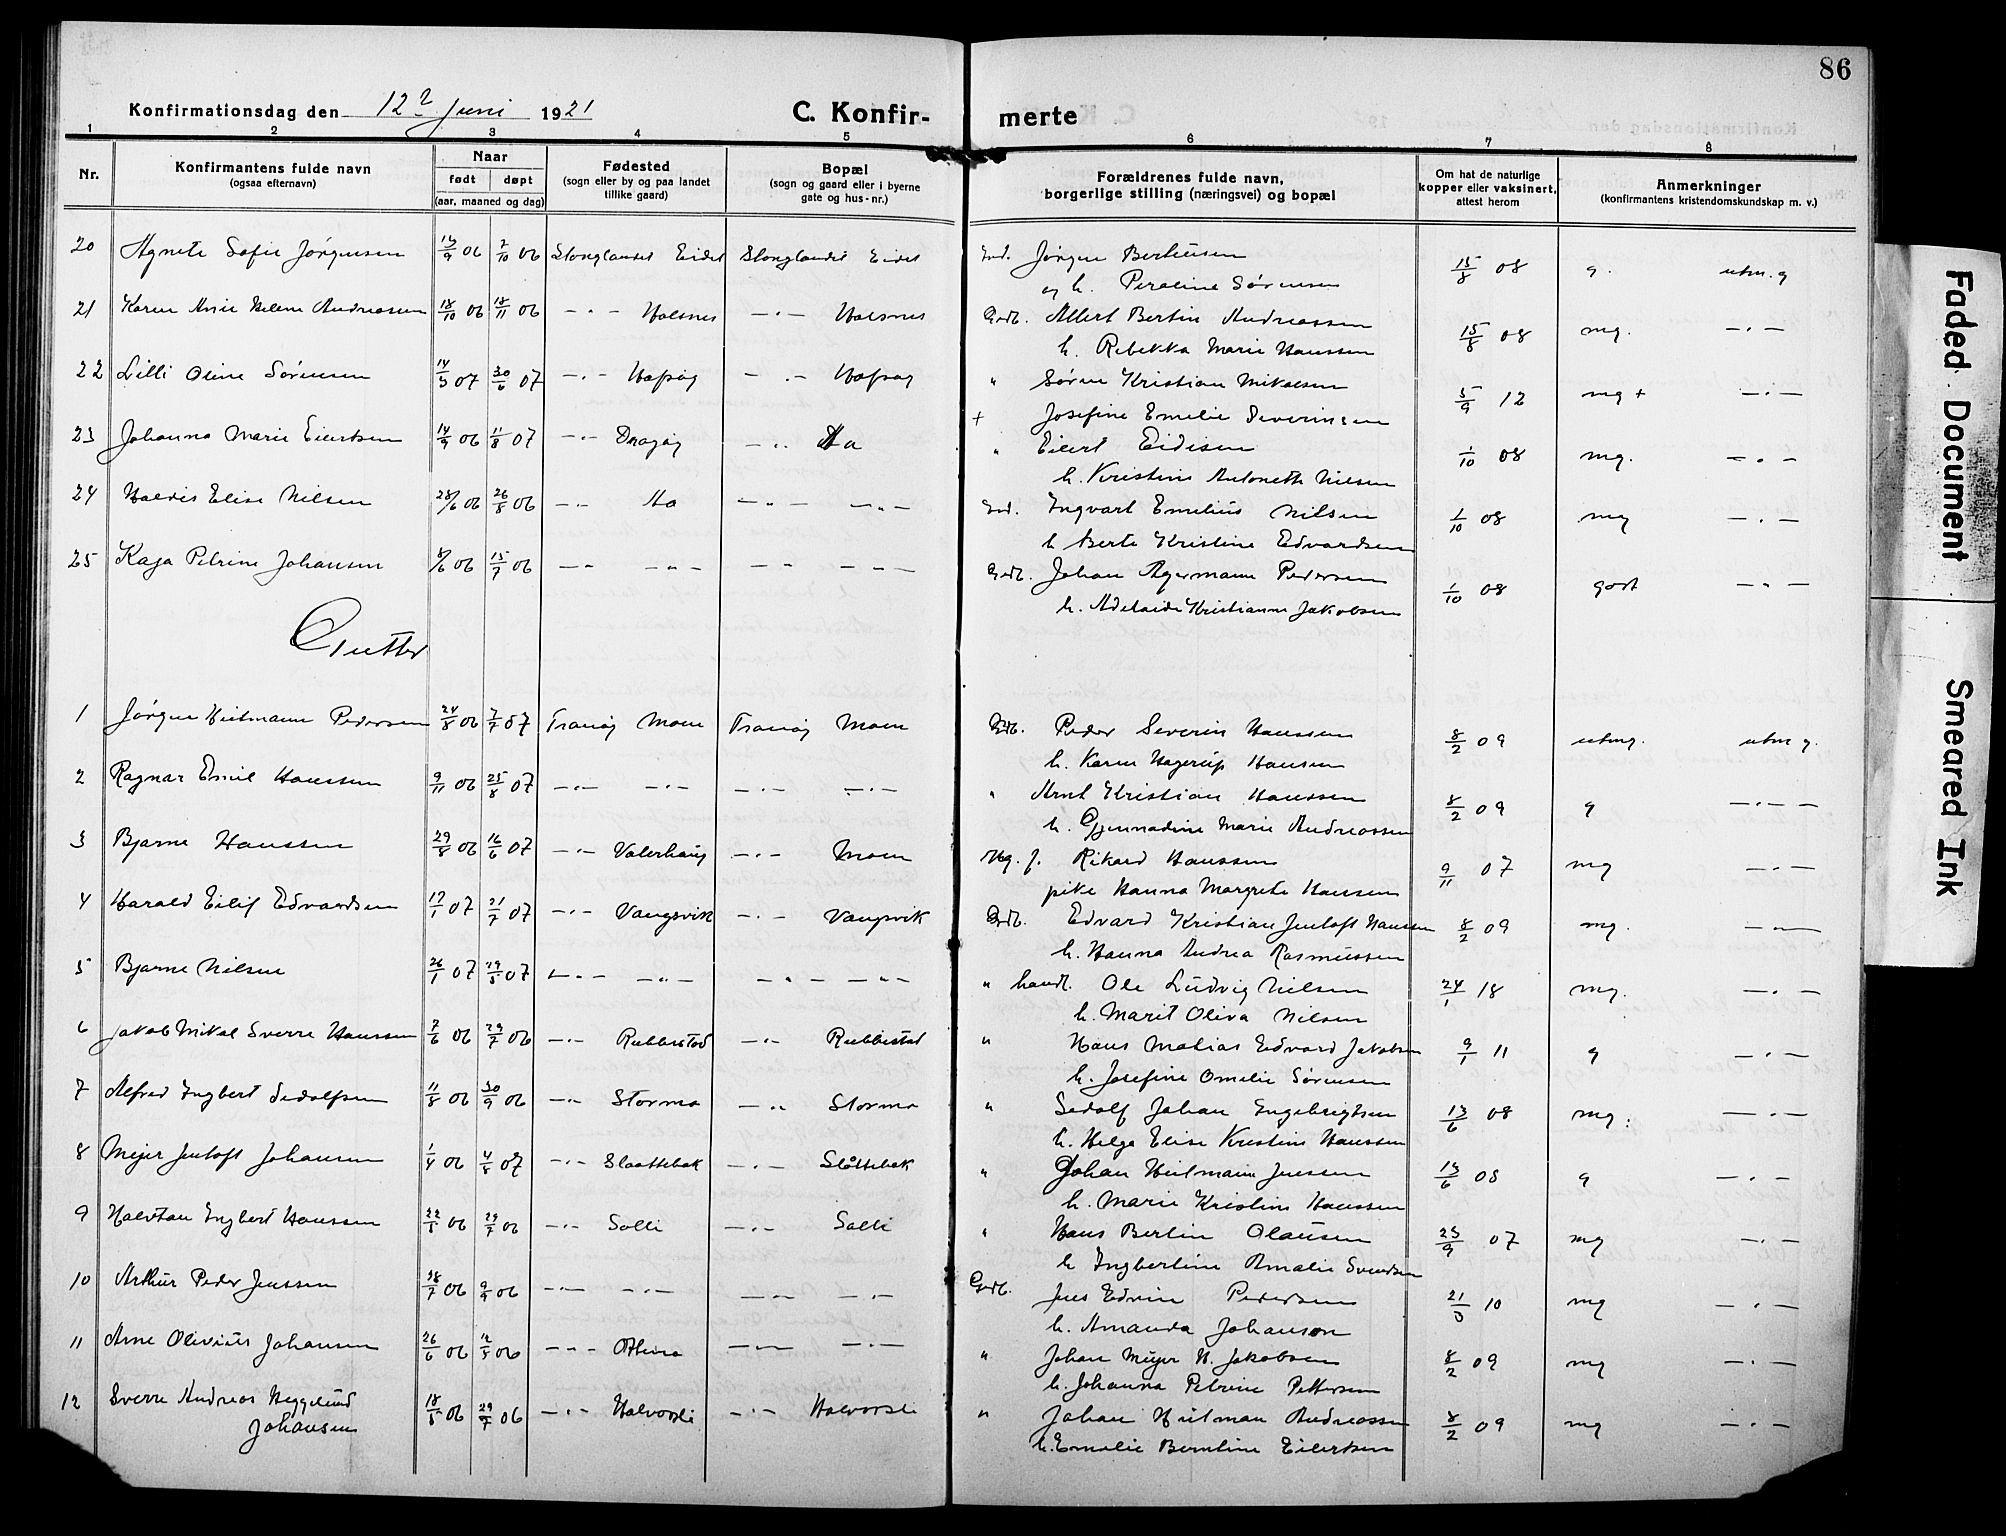 86
Konfirmationsdag den 12 Juni 1921
C. Konfir- merte
1 2 3 4 5 6 7 8
Nr.
Konfirmantens fulde navn
(ogsaa efternavn)
Naar
født døpt
(aar, maaned og dag)
Fødested
(sogn eller by og paa landet
tillike gaard)
Bopæl
(sogn og gaard eller i byerne
gate og hus-nr.)
Forældrenes fulde navn,
borgerlige stilling (næringsvei) og bopæl
Om hat de naturlige
kopper eller vaksinert,
attest herom
Anmerkninger
(konfirmantens kristendomskundskap m. v.)
20 Agnete Sofie Jørgensen 13/9 06 7/10 06 Stonglandet Eidet Stonglandet Eidet Jørgen Berteusen 15/8 08 g. utm. g
og h. Peroline Sørensen
21 Karen Anie Helene Andreassen 18/10 06 18/11 06 -"- Valsnes -"- Valsnes Grdb. Albert Bertin Andreassen 15/8 08 mg. -"-
h. Rebekka Marie Hanssen
22 Lilli Oline Sørensen 14/3 07 30/6 07 -"- -"- " Søren Kristian Mikalsen 5/9 12 mg + -"-
+ Josefine Emelie Severinsen
23 Johanna Marie Eiertsen 14/9 06 11/8 07 -"- Dragøy -"- Aa " Eilert Eidisen 1/10 08 mg. -"-
h. Kristine Antonette Nilsen
24 Haldis Elise Nilsen 28/6 06 26/8 06 -"- Aa -"- -"- Ingvart Emelius Nilsen 1/10 08 mg -"-
h Berte Kristine Edvardsen
25 Kaja Petrine Johansen 8/6 06 15/7 06 -"- -"- -"- -"- Grdb. Johan Agermann Pedersen 1/10 08 godt -"-
h. Adelaide Kristianne Jakobsen
Gutter
1 Jørgen Hielmann Pedersen 24/8 06 7/7 07 Tranøy Moen Tranøy Moen Grdb. Peder Severin Hanssen 8/2 09 utmg. utm g.
h. Karen Hagerup Hansen
2 Ragnar Emil Hanssen 9/11 06 25/8 07 -"- -"- -"- -"- " Arnt Kristian Hanssen 8/2 09 g -"-
h. Gjennadine Marie Andreassen
3 Bjarne Hanssen 29/8 06 16/6 07 -"- Valerhaug -"- Moen Ug. f. Rikard Hanssen 9/11 07 mg -"-
pike Hanna Margrete Hanssen
4 Harald Eilif Edvardsen 17/1 07 21/7 07 -"- Vangsvik -"- Vangsvik Grdb. Edvard Kristian Jentoft Hanssen 8/2 09 mg. -"-
h. Hanna Andrea Rasmussen
5 Bjarne Nilsen 26/1 07 29/5 07 -"- -"- -"- -"- " handl. Ole Ludvig Nilsen 24/1 18 mg. -"-
h. Marit Oliva Nilsen
6 Jakob Mikal Sverre Hanssen 7/6 06 29/7 06 -"- Rubbestad -"- Rubbestad " Hans Matias Edvard Jakobsen 9/1 11 g -"-
h. Josefine Omelie Sørensen
7 Alfred Ingbert Sedolfsen 11/8 06 30/9 06 -"- Stormo -"- Stormo " Sedolf Johan Engebrigtsen 13/6 08 mg. -"-
h. Helga Elise Kristine Hanssen
8 Mejer Jentoft Johansen 1/4 06 4/8 07 -"- Slaattebak -"- Slåttebak " Johan Hielmann Jenssen 13/6 08 g -"-
h. Marie Kristine Hanssen
9 Halvtan Ingbert Hanssen 22/5 06 29/7 06 -"- Solli -"- Solli " Hans Bertin Olausen 23/9 07 mg -"-
h Ingbertine Amalie Svendsen
10 Arthur Peder Jenssen 18/7 06 9/9 06 -"- -"- -"- -"- Grdb. Jens Edvin Pedersen 21/3 10 mg -"-
h. Amanda Johanson
11 Arne Olivius Johansen 26/6 06 12/8 06 -"- -"- -"- " Johan Mejer H. Jakobsen 8/2 09 mg -"-
h. Johanna Petrine Pettersen
12 Sverre Andreas Heggelund 18/5 06 29/7 06 -"- Halvorsli -"- Halvorsli " Johan Hielman Andreassen 8/2 09 mg -"-
Johansen h. Emelie Berntine Eilertsen
Faded Document
Smeared Ink